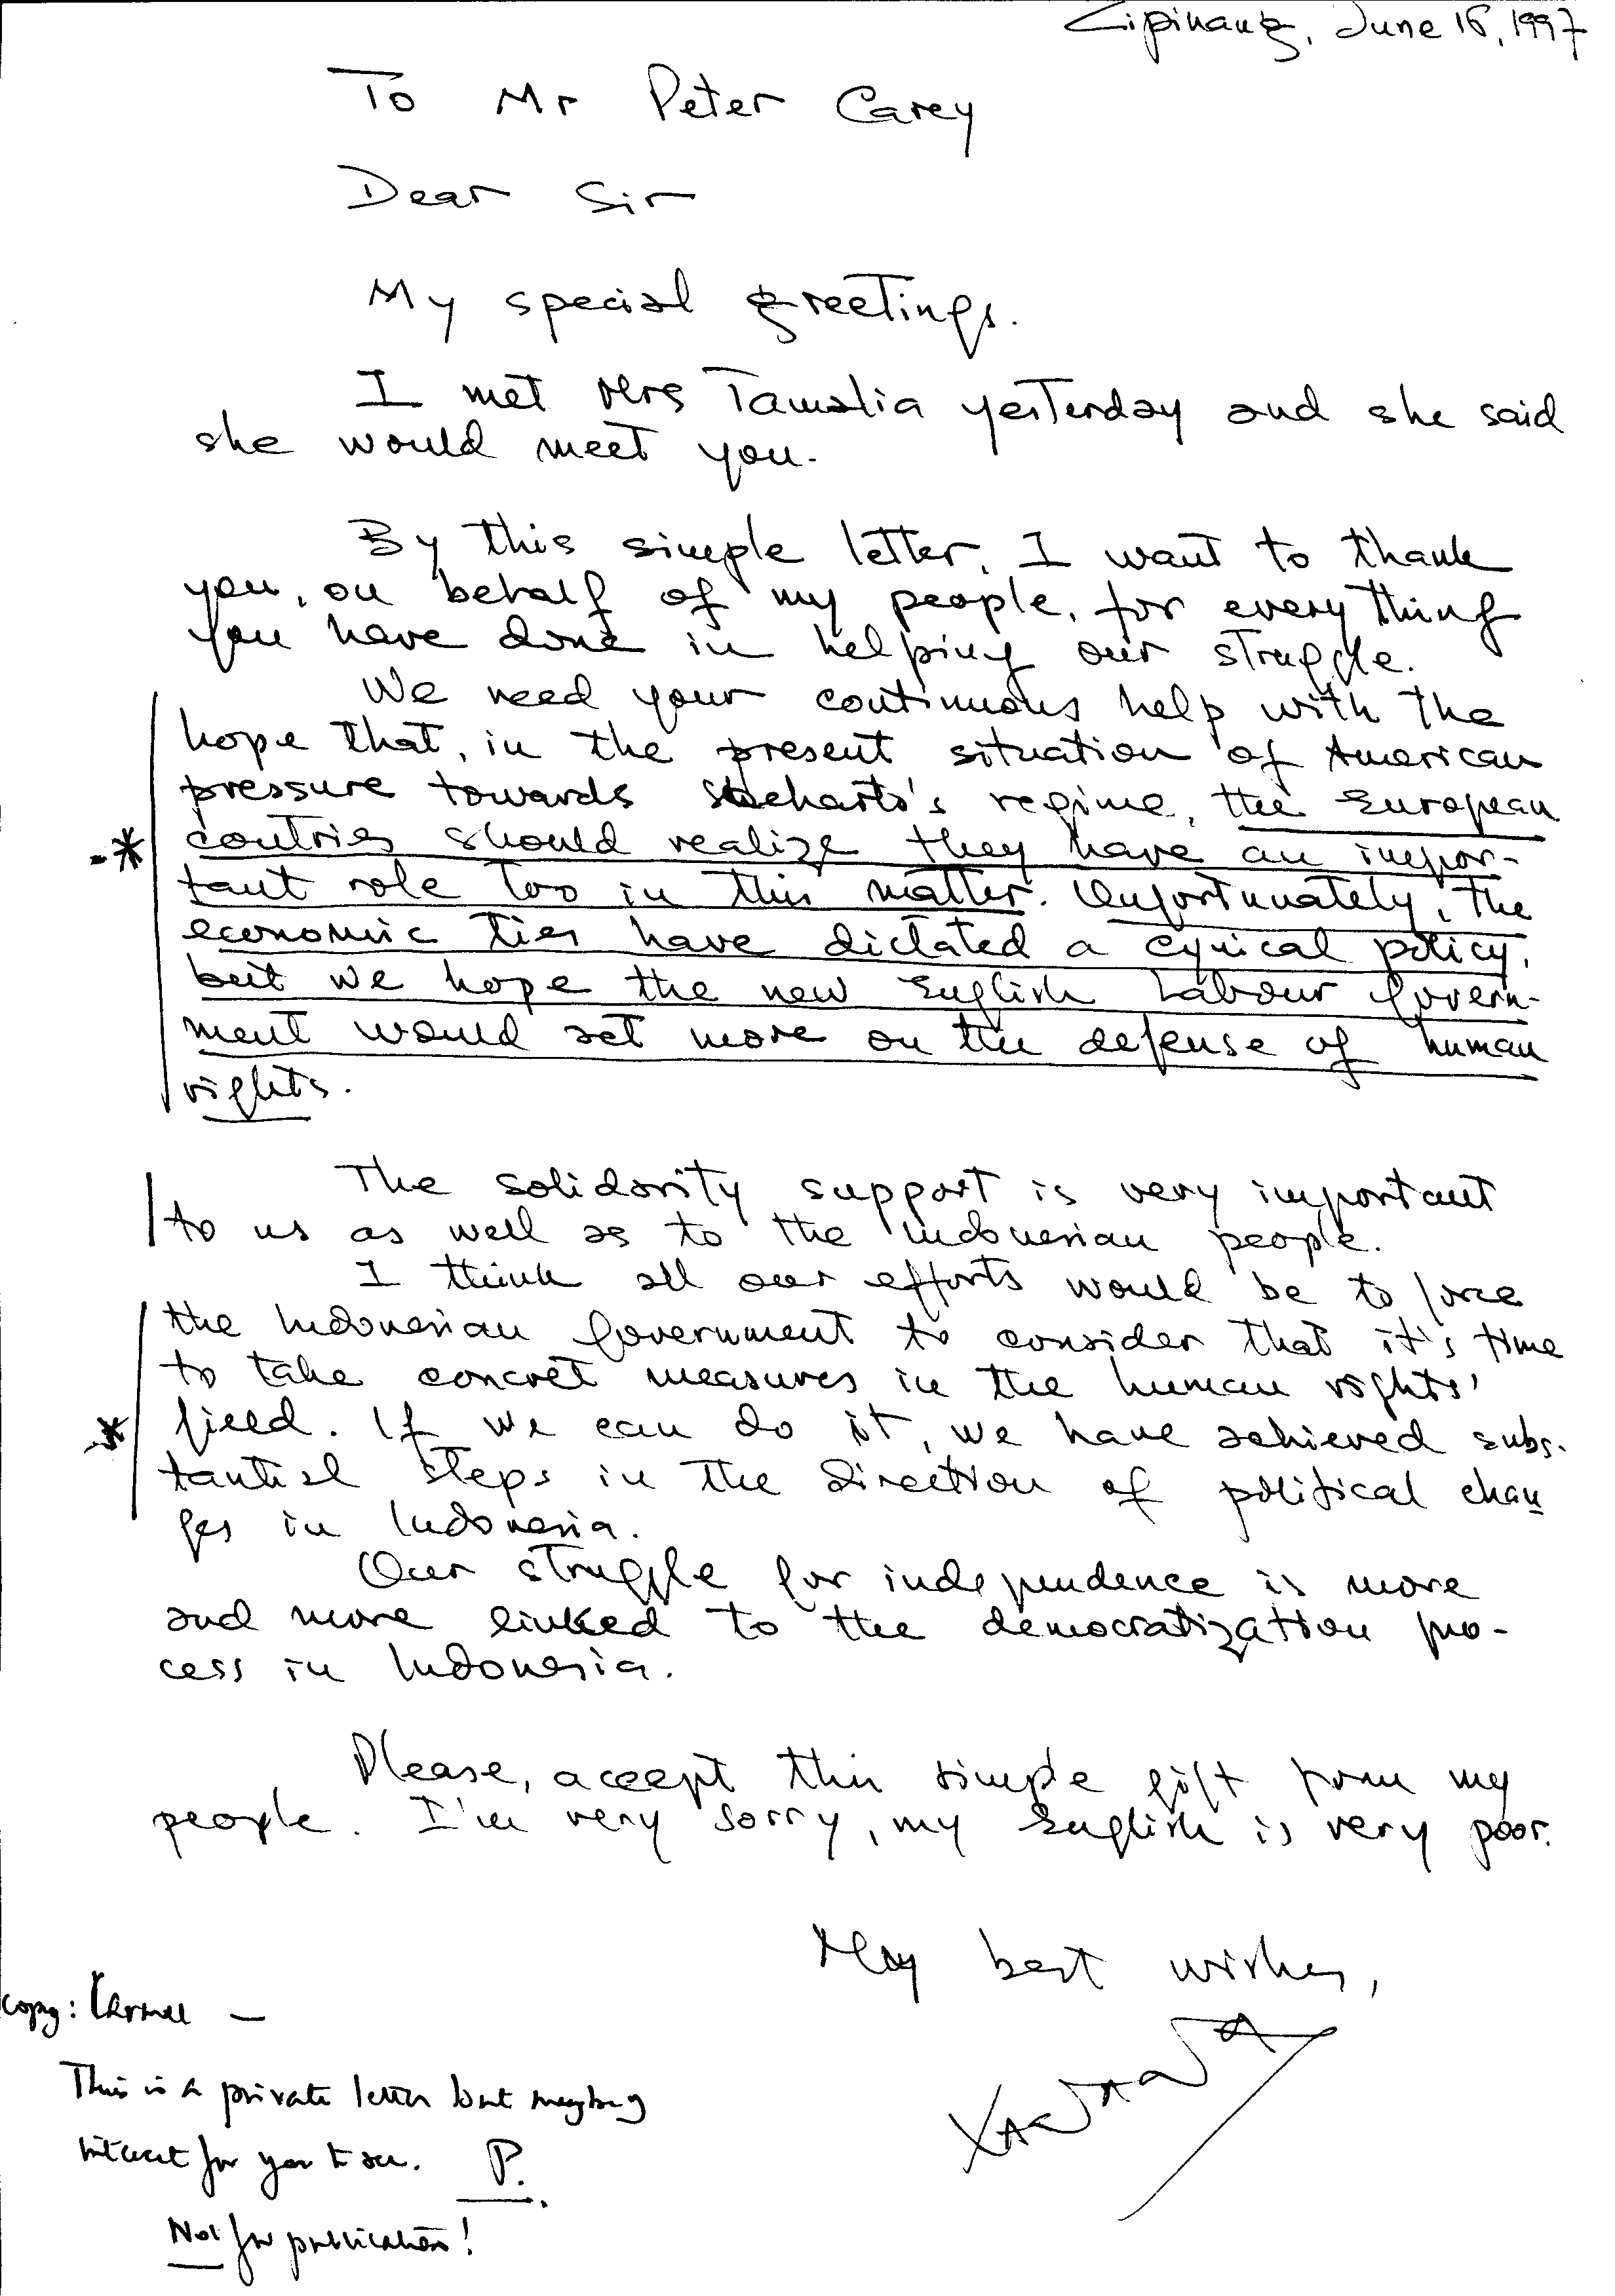 Cipinang, June 16, 1997
To Mr Peter Carey
Dear Sir
My special greetings.
I met Mrs Tamalia yesterday and she said
she would meet you.
By this simple letter, I want to thank
you, on behalf of my people, for everything
you have done in helping our struggle.
We need your continuous help with the
hope that, in the present situation of American
pressure towards Soeharto's regime, the European
coutries should realize they have an impor-
tant role too in this matter. Unfortunately, the
economic ties have dictated a cynical policy,
but we hope the new English Labour Govern-
ment would act more on the defense of human
rights.
The solidarity support is very important
to us as well as to the Indonesian people.
I think all our efforts would be to force
the Indonesian Government to consider that it's time
to take concret measures in the human rights'
field. If we can do it, we have achieved subs-
tantial steps in the direction of political chan
ges in Indonesia.
Our struggle for independence is more
and more linked to the democratization pro-
cess in Indonesia.
Please, accept this simple gift from my
people. I'm very sorry, my English is very poor.
My best wishes,
copy: Carmel —
XANANA
This is a private letter but maybe of
interest for you to see. P.
Not for publication!